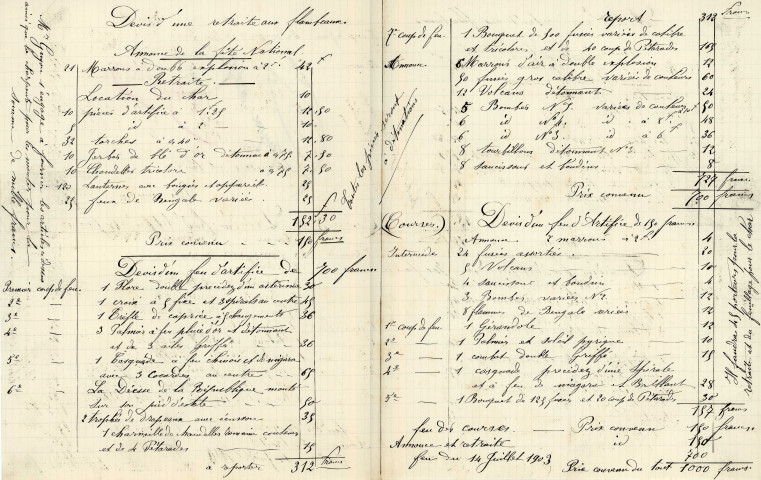 Devis d'une retraite aux flambeaux
Annonce de la fête National
21 Marrons à double explosion à 2f 42 f
Retraite
Location du char 10
10 pièces d'artifice à 1.25 12.50
5 id à 2 10
32 torches à 0.40 12.80
10 Jerbes de blé d'or détonnant à 0.75 7.50
10 Chandelles tricolore à 0.75 7.50
120 Lanternes avec bougies et apparêt 25
25 feux de Bengale variés 25
152 f 30
Prix convenu 150 francs
Toutes les pièces seront
à détonations
Mr s'engage à fournir les articles ci-dessus
ainsi que la pour la
somme de mille francs.
Devis d'un feu d'artifice de 700 francs
Premier coup de feu 1 Flore double précédée d'un astérisme 30
2e 1 croix à 5 feux et 3 spirales au centre 45
3e 1 Trèfle de caprice à changements 36
4e 3 Palmiers à feu pluie d'or et détonnant
et de 3 ailes Griffe 36
5e 1 Cascade à feu chinois et de niagara
avec 3 Cocardes au centre 65
6e La Déesse de la République monté
sur son piédestale 50
2 trophés de drapeaux avec écusson 35
1 charmille de chandelles romaine couleurs
et de 4 Pétarades 15
à reporter 312 francs
report 312 francs
7e coup de feu 1 Bouquet de 300 fusées variées de calibre
et tricolores et de 40 coup de Pétarades 105
Annonce 6 Marrons d'air à double explosion 12
30 fusées gros calibre variées de couleurs 60
12 Volcans détonnant 24
5 Bombes No 5 variées de couleurs 50
6 id No 4 id à 8 f 48
6 id No 3 id à 6 f 36
8 tourbillons détonnant No 2 12
8 saucissons et boudins 8
727 francs
Prix convenu 700 francs
(Courses) Devis d'un feu d'Artifice de 150 francs
Annonce 2 marrons à 2f 4
Intermèdes 24 fusées assorties 20
5 Volcans 10
4 saucissons et boudins 4
3 Bombes variées No 2 12
8 flammes de Bengale variées 12
1er coup de feu 1 Girandole 12
2e 1 Palmier et soleil pyrique 10
3e 1 combat double Griffe 15
4e 1 cascade précédée d'une spirale
et à feu de niagara et Brillant 28
5e 1 Bouquet de 125 fusées et 20 coup de Pétarades 30
157 francs
feu des courses Prix convenu 150 francs
Annonce et retraite id 150
feu du 14 Juillet 1903 700
Prix convenu du tout 1000 francs
Il faudra 45 porteurs pour la
retraite et du feuillage pour le char